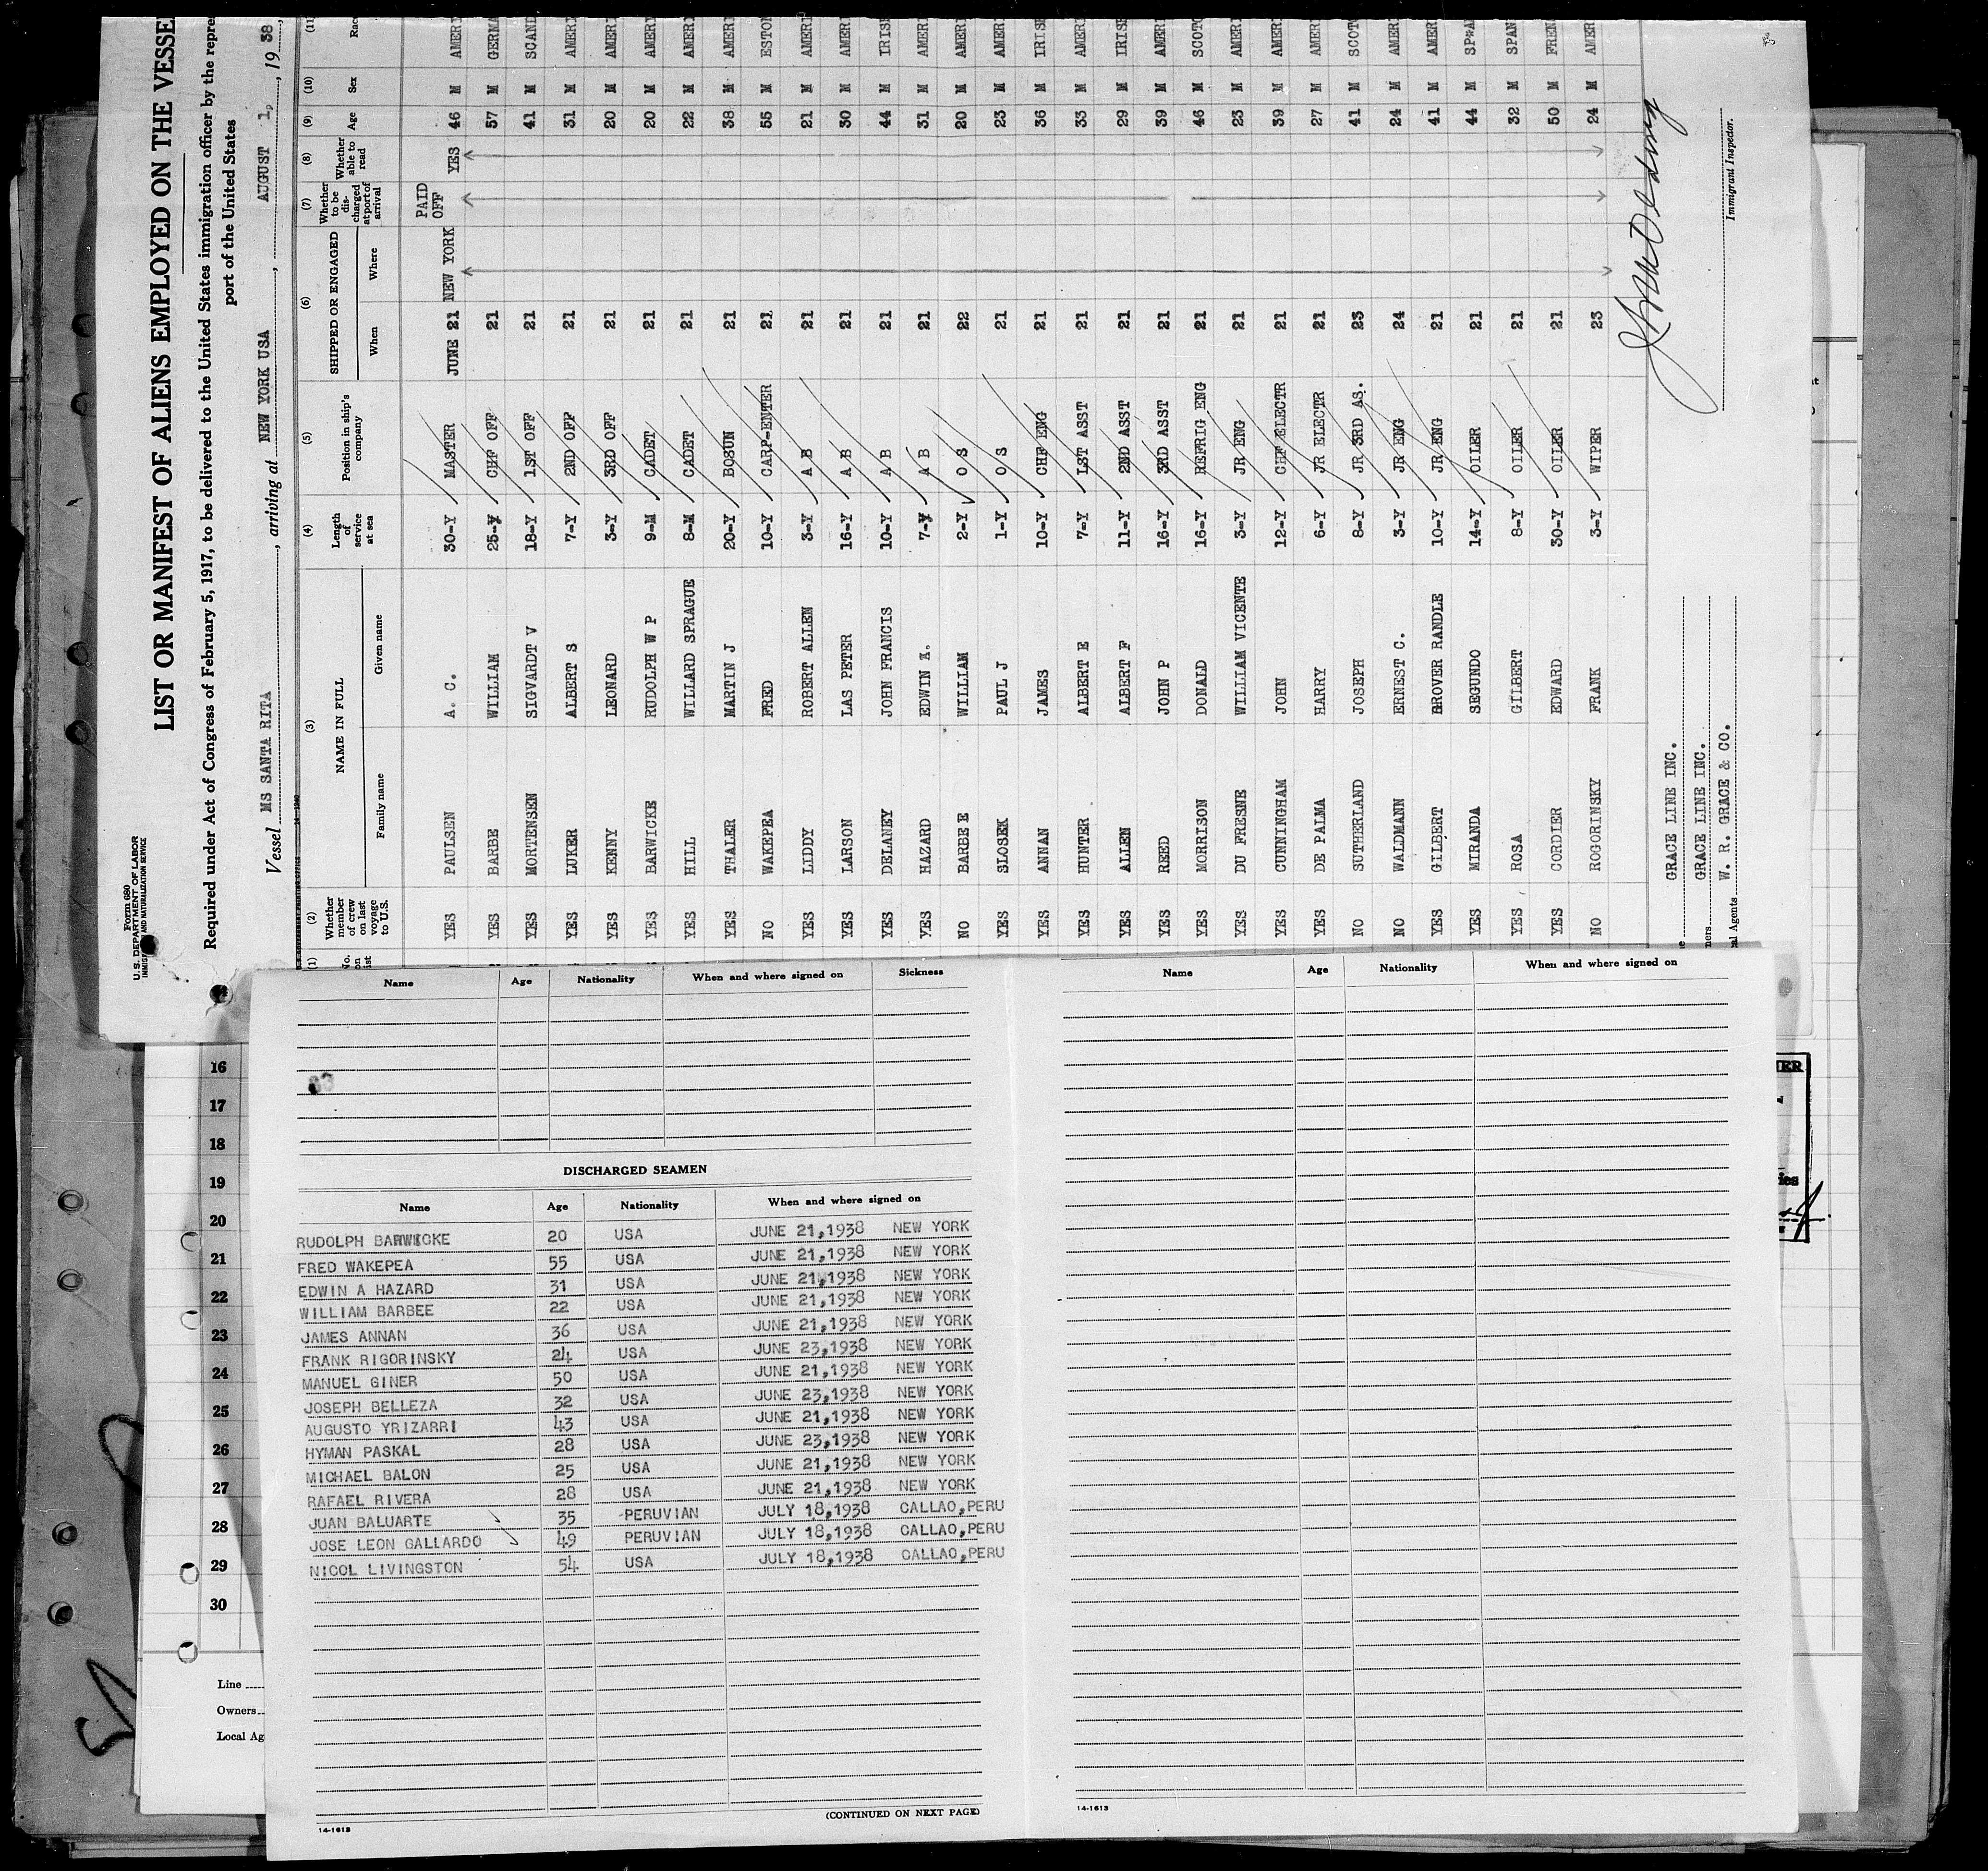 Form 680
U. S. DEPARTMENT OF LABOR
IMMIGRATION AND NATURALIZATION SERVICE
LIST OR MANIFEST OF ALIENS EMPLOYED ON THE VESSE
Required under Act of Congress of February 5, 1917, to be delivered to the United States immigration officer by the repre
port of the United States
Vessel MS SANTA RITA, arriving at NEW YORK USA, AUGUST 1, 19 38
(1) (2) (3) (4) (5) (6) (7) (8) (9) (10) (11)
No. on list
Whether member of crew on last voyage to U.S.
NAME IN FULL
Family name Given name
Length of service at sea
Position in ship's company
SHIPPED OR ENGAGED
When Where
Whether to be discharged at port of arrival
Whether able to read
Age Sex Race
YES PAULSEN A. C. 30-Y MASTER JUNE 21 NEW YORK PAID OFF YES 46 M AMERI
YES BARBE WILLIAM 25-Y CHF OFF 21 57 M GERMA
YES MORTENSEN SIGVARDT V 18-Y 1ST OFF 21 41 M SCAND
YES LUKER ALBERT S 7-Y 2ND OFF 21 31 M AMERI
YES KENNY LEONARD 3-Y 3RD OFF 21 20 M AMERI
YES BARWICKE RUDOLPH W P 9-M CADET 21 20 M AMERI
YES HILL WILLARD SPRAGUE 8-M CADET 21 22 M AMERI
YES THALER MARTIN J 20-Y BOSUN 21 38 M AMERI
NO WAKEPEA FRED 10-Y CARP-ENTER 21 55 M ESTON
YES LIDDY ROBERT ALLEN 3-Y A B 21 21 M AMERI
YES LARSON LAS PETER 16-Y A B 21 30 M AMERI
YES DELANEY JOHN FRANCIS 10-Y A B 21 44 M IRISH
YES HAZARD EDWIN A. 7-Y A B 21 31 M AMERI
NO BARBE E WILLIAM 2-Y O S 22 20 M AMERI
YES SLOSEK PAUL J 1-Y O S 21 23 M AMERI
YES ANNAN JAMES 10-Y CHF ENG 21 36 M IRISH
YES HUNTER ALBERT E 7-Y 1ST ASST 21 33 M AMERI
YES ALLEN ALBERT F 11-Y 2ND ASST 21 29 M IRISH
YES REED JOHN P 16-Y 3RD ASST 21 39 M AMERI
YES MORRISON DONALD 16-Y REFRIG ENG 21 46 M SCOTC
YES DU FRESNE WILLIAM VICENTE 3-Y JR ENG 21 23 M AMERI
YES CUNNINGHAM JOHN 12-Y CHF ELECTR 21 39 M AMERI
YES DE PALMA HARRY 6-Y JR ELECTR 21 27 M AMERI
NO SUTHERLAND JOSEPH 8-Y JR 3RD AS. 23 41 M SCOT
NO WALDMANN ERNEST C. 3-Y JR ENG 24 24 M AMERI
YES GILBERT GROVER RANDLE 10-Y JR ENG 21 41 M AMERI
YES MIRANDA SEGUNDO 14-Y OILER 21 44 M SPAN
YES ROSA GILBERT 8-Y OILER 21 32 M SPAN
YES CORDIER EDWARD 30-Y OILER 21 50 M FREN
NO ROGORINSKY FRANK 3-Y WIPER 23 24 M AMER
GRACE LINE INC.
GRACE LINE INC.
W. R. GRACE & CO.
ners
al Agents
Immigrant Inspector.
Name Age Nationality When and where signed on Sickness
DISCHARGED SEAMEN
Name Age Nationality When and where signed on
RUDOLPH BARWICKE 20 USA JUNE 21,1938 NEW YORK
FRED WAKEPEA 55 USA JUNE 21,1938 NEW YORK
EDWIN A HAZARD 31 USA JUNE 21,1938 NEW YORK
WILLIAM BARBEE 22 USA JUNE 21,1938 NEW YORK
JAMES ANNAN 36 USA JUNE 21,1938 NEW YORK
FRANK RIGORINSKY 24 USA JUNE 23,1938 NEW YORK
MANUEL GINER 50 USA JUNE 21,1938 NEW YORK
JOSEPH BELLEZA 32 USA JUNE 23,1938 NEW YORK
AUGUSTO YRIZARRI 43 USA JUNE 21,1938 NEW YORK
HYMAN PASKAL 28 USA JUNE 23,1938 NEW YORK
MICHAEL BALON 25 USA JUNE 21,1938 NEW YORK
RAFAEL RIVERA 28 USA JUNE 21,1938 NEW YORK
JUAN BALUARTE 35 -PERUVIAN JULY 18,1938 CALLAO,PERU
JOSE LEON GALLARDO 49 PERUVIAN JULY 18,1938 CALLAO,PERU
NICOL LIVINGSTON 54 USA JULY 18,1938 CALLAO,PERU
(CONTINUED ON NEXT PAGE)
14-1613
Name Age Nationality When and where signed on
14-1613
16
17
18
19
20
21
22
23
24
25
26
27
28
29
30
Line
Owners
Local Ag